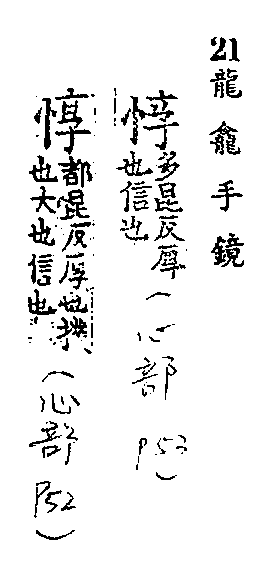 21龍龕手鏡
惇多昆反厚也信也(心部 P53)
惇都昆反厚也也大也信也(心部 P52)